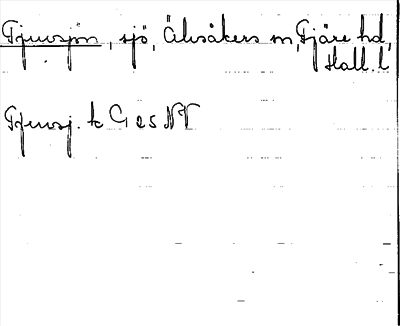 Tjursjön, sjö, Älvsåkers sn, Fjäre hd,
Hall. l.
Tjursj. tc G 25 NV